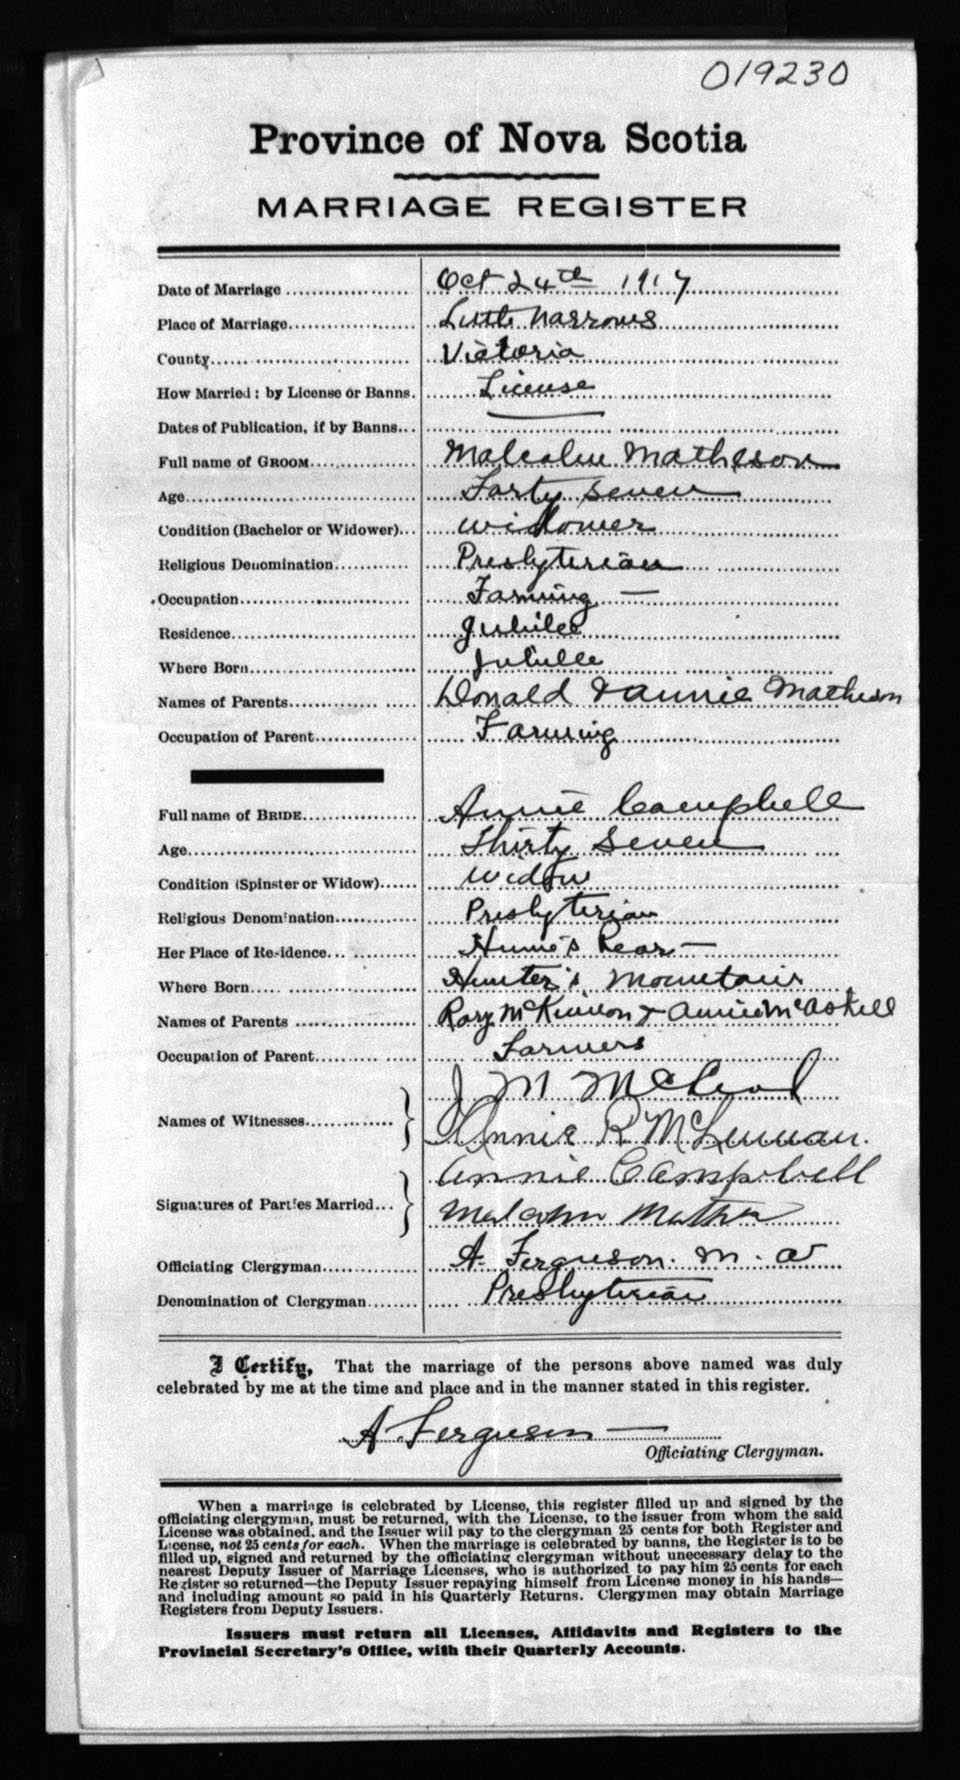 019230
Province of Nova Scotia
MARRIAGE REGISTER
Date of Marriage Oct 24th 1917
Place of Marriage Little Narrows
County Victoria
How Married: by License or Banns. License
Dates of Publication, if by Banns
Full name of GROOM Malcolm Matheson
Age Forty seven
Condition (Bachelor or Widower) widower
Religious Denomination Presbyterian
Occupation Farming —
Residence Jubilee
Where Born Jubilee
Names of Parents Donald & Annie Matheson
Occupation of Parent Farming
Full name of BRIDE Annie Campbell
Age Thirty Seven
Condition (Spinster or Widow) widow
Religious Denomination Presbyterian
Her Place of Residence Hume's Rear —
Where Born Hunter's Mountain
Names of Parents Rory McKinnon & Annie McAskill
Occupation of Parent Farmers
J M McLeod
Names of Witnesses
Annie R McLennan.
Annie Campbell
Signatures of Parties Married
Malcolm
Officiating Clergyman A. Ferguson. M. A
Denomination of Clergyman Presbyterian
I Certify, That the marriage of the persons above named was duly
celebrated by me at the time and place and in the manner stated in this register.
A Ferguson —
Officiating Clergyman.
When a marriage is celebrated by License, this register filled up and signed by the
officiating clergyman, must be returned, with the License, to the issuer from whom the said
License was obtained. and the Issuer will pay to the clergyman 25 cents for both Register and
License, not 25 cents for each. When the marriage is celebrated by banns, the Register is to be
filled up, signed and returned by the officiating clergyman without unnecessary delay to the
nearest Deputy Issuer of Marriage Licenses, who is authorized to pay him 25 cents for each
Register so returned—the Deputy Issuer repaying himself from License money in his hands—
and including amount so paid in his Quarterly Returns. Clergymen may obtain Marriage
Registers from Deputy Issuers.
Issuers must return all Licenses, Affidavits and Registers to the
Provincial Secretary's Office, with their Quarterly Accounts.